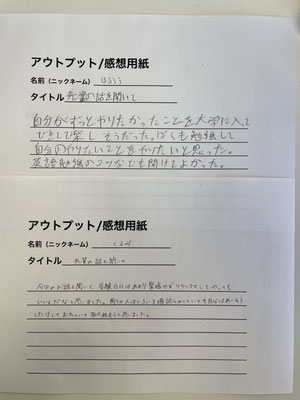 アウトプット/感想用紙
名前（ニックネーム） はるろう
タイトル 先輩の話を聞いて
自分がずっとやりたかったことを大学に入って
できてて楽しそうだった。ぼくも勉強して
自分のやりたいことをやりたいと思った。
英語勉強のコツなども聞けてよかった。
アウトプット/感想用紙
名前（ニックネーム） くるみ
タイトル 先輩の話を聞いて
今日のお話を聞いて、受験当日はあまり緊張せずリラックスしてやっても
いいんだなと思いました。周りの人はいろいろ
おちついて取り組もうと思いました。